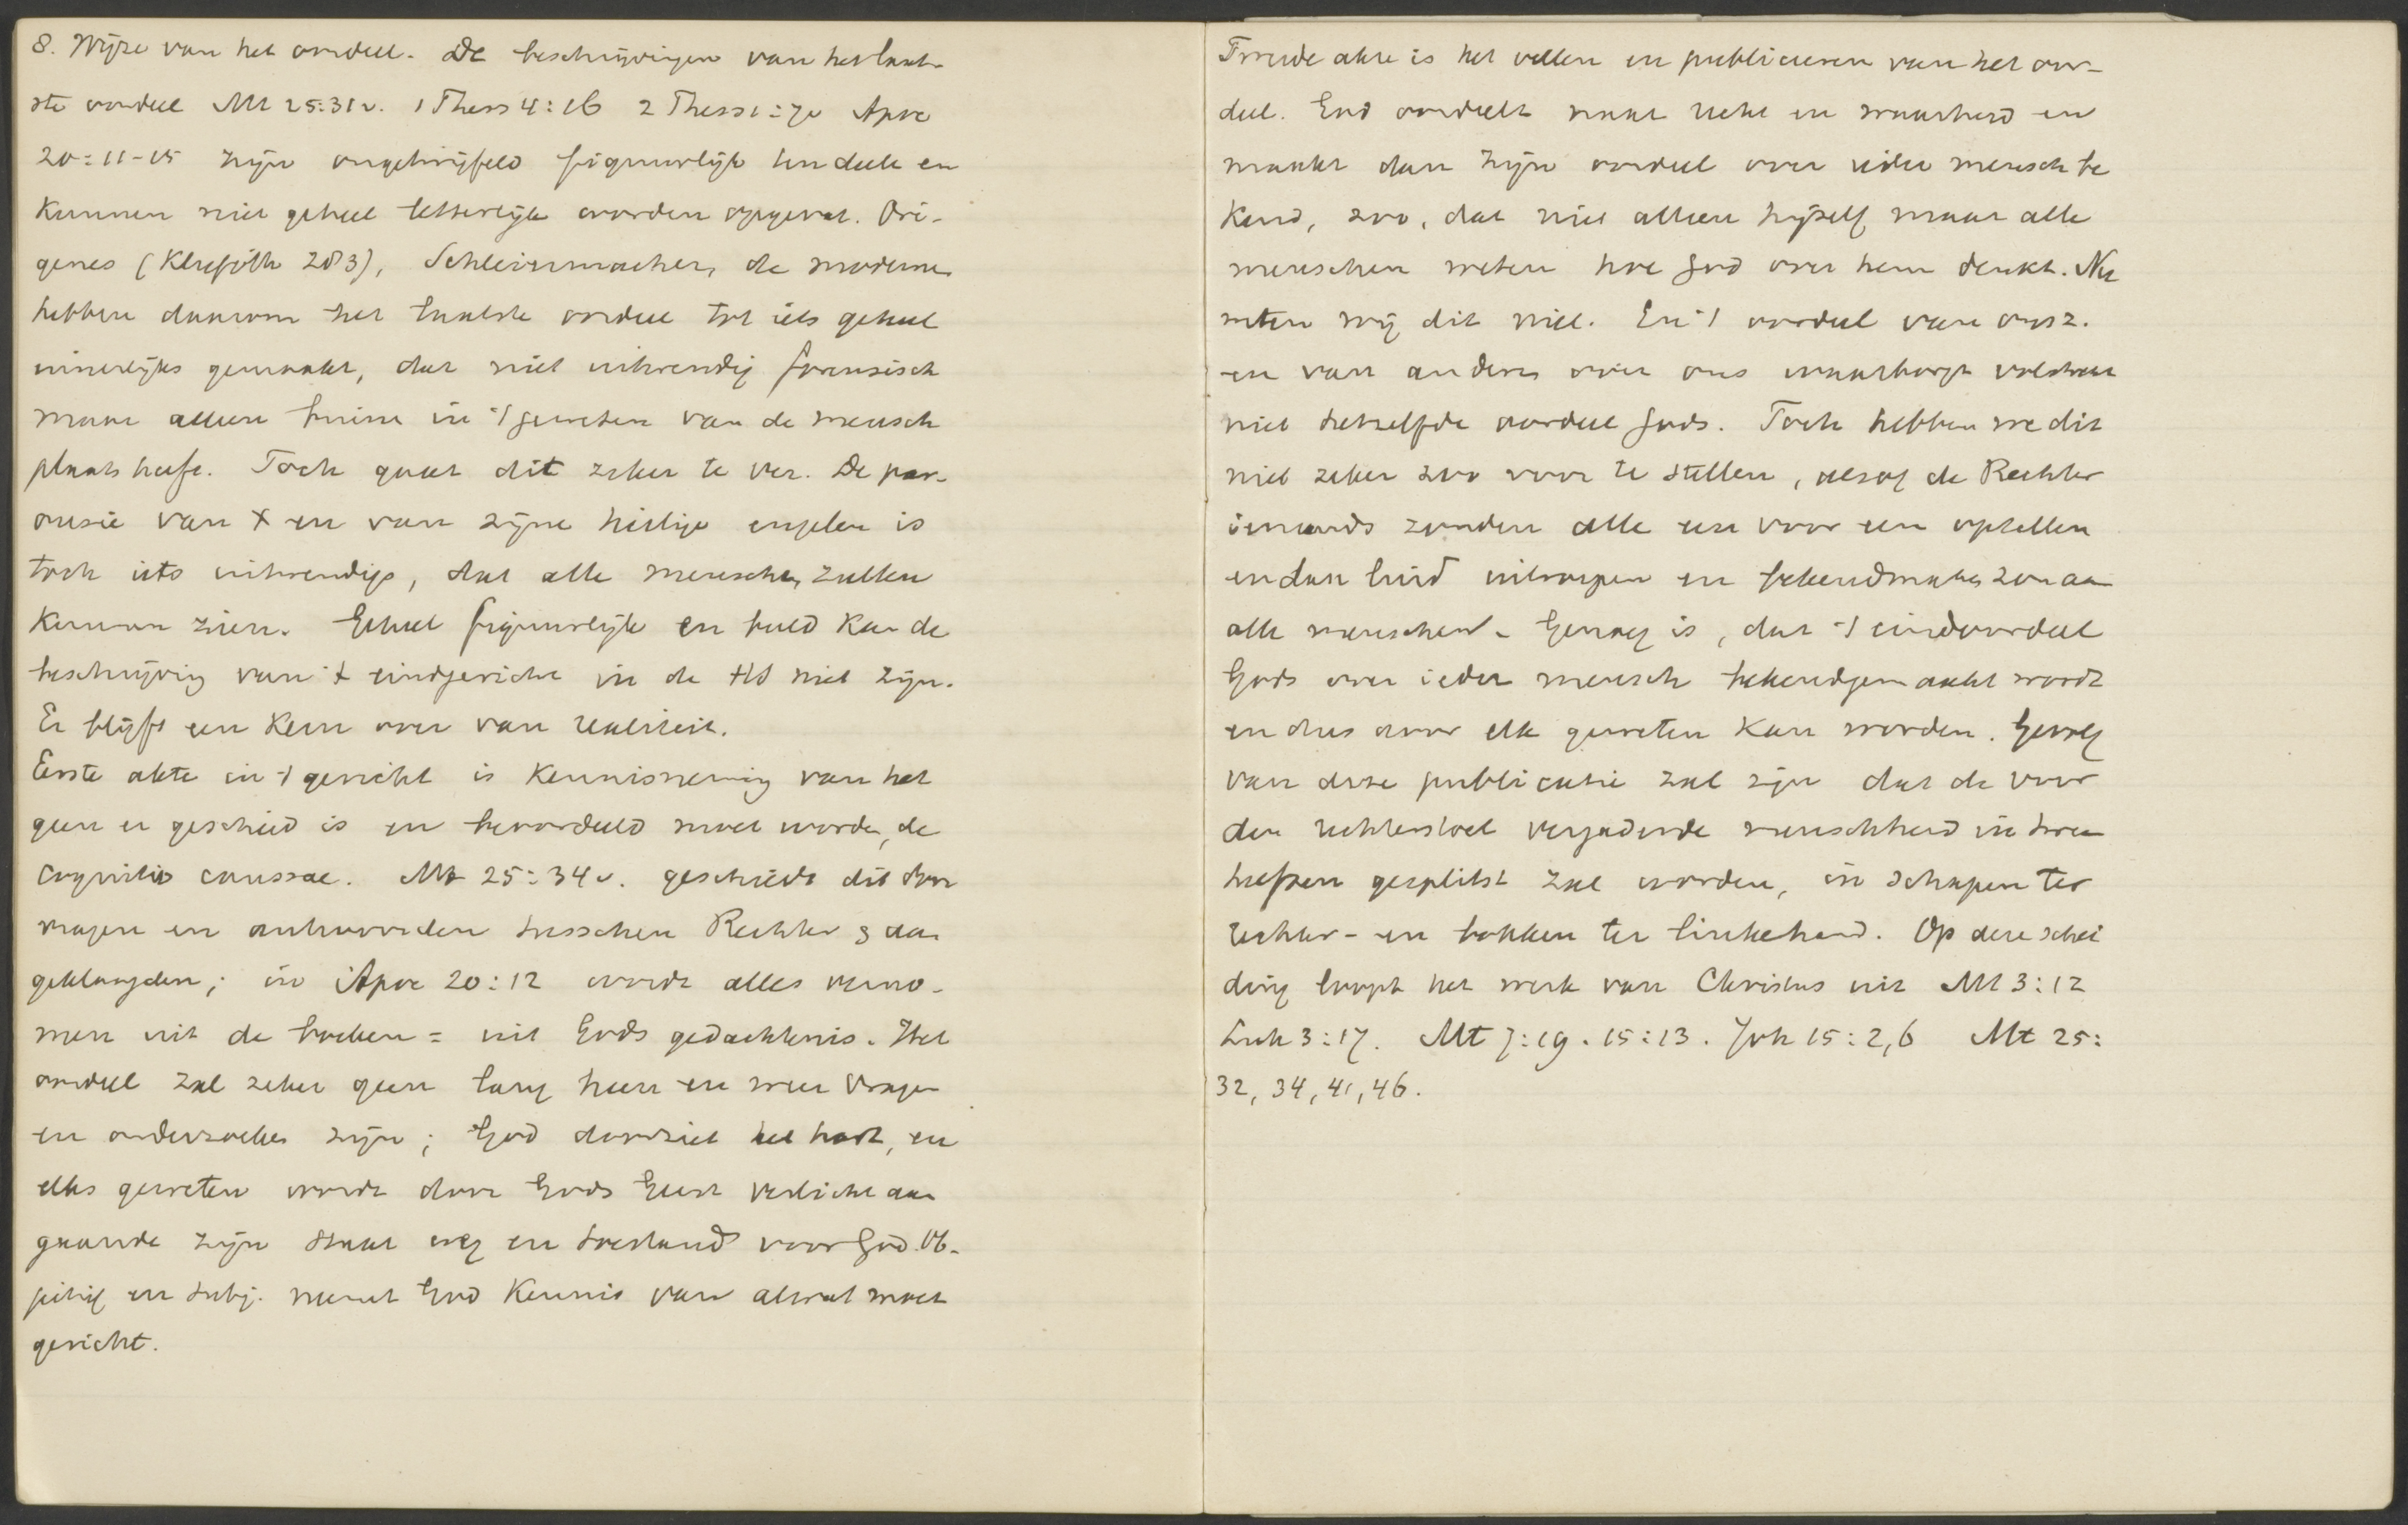 8. Wijze van het oordeel. De beschrijvingen van het laat-
ste oordeel Mt 25:31v. 1 Thess 4:16 2 Thess 1:7v Apoc
20:11-15 zijn ongetwijfeld figuurlijk ten deele en
kunnen niet geheel letterlijk worden opgevat. Ori-
genes (Kliefoth 283), Schleiermacher, de moderne
hebben daarom het laatste oordeel tot iets geheel
innerlijks gemaakt, dat niet uitwendig forensisch
maar alleen binnen in 't geweten van de mensch
plaats heeft. Toch gaat dit zeker te ver. De par-
ousie van X en van zijne heilige engelen is
toch iets uitwendigs, dat alle menschen zullen
kunnen zien. Geheel figuurlijk en beeld kan de
beschrijving van 't eindgericht in de HS niet zijn.
Er blijft een kern over van realiteit.
Eerste akte in 't gericht is kennisneming van het
geen er geschied is en beoordeeld moet worden, de
cognitio caussae. Mt 25:34v. geschiedt dit door
vragen en antwoorden tusschen Rechter & aan
geklaagden; in Apoc 20:12 wordt alles verno-
men uit de boeken = uit Gods gedachtenis. Het
oordeel zal zeker geen lang heen en weer vragen
en onderzoeken zijn; God doorziet het hart, en
elks geweten wordt door Gods Geest verlicht aan
gaande zijn staat weg en toestand voor God. Ob-
jectief en subj. neemt God kennis van alwat moet
gericht.
Tweede akte is het vellen en publiceeren van het oor-
deel. God oordeelt naar recht en waarheid en
maakt dan zijn oordeel over ieder mensch be
kend, zoo, dat niet alleen hijzelf maar alle
menschen weten hoe God over hem denkt. Nu
weten wij dit niet. En 't oordeel van onsz.
en van anderen over ons waarborgt volstrekt
niet hetzelfde oordeel Gods. Toch hebben we dit
niet zeker zoo voor te stellen, alsof de Rechter
iemands zonden alle een voor een optellen
en dan luid uitroepen en bekendmaken zou aan
alle menschen. Genoeg is, dat 't eindoordeel
Gods over ieder mensch bekendgemaakt wordt
en dus door elk geweten kan worden. Gevolg
van deze publicatie zal zijn dat de voor
den rechterstoel vergaderde menschheid in twee
helften gesplitst zal worden, in schapen ter
rechter- en bokken ter linkehand. Op deze schei
ding loopt het werk van Christus uit Mt 3:12
Luk 3:17. Mt 7:19. 15:13. Joh 15:2,6 Mt 25:
32, 34, 41, 46.